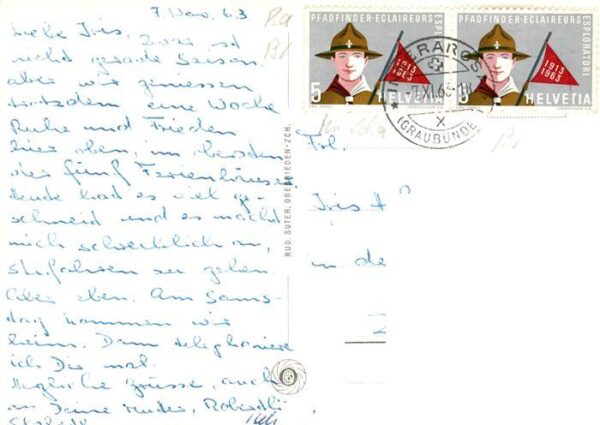 7. Nov. 63
Liebe Iris, zwar ist
nicht gerade Saison
aber wir geniessen
trotzdem eine Woche
Ruhe und Frieden
hier oben, im
vier fünf Ferienhäuser
Heute hat es viel ge-
schneit und es macht
mich schrecklich an,
skifahren zu gehen
Aber eben. Am Sams-
tag kommen wir
heim. Dann telephoniere
ich Dir mal.
Herzliche Grüsse, auch
an Deine Mutter,
RUD. SUTER, OBERRIEDEN-ZCH.
PFADFINDER·ECLAIREURS
ESPLORATORI
1913
1963
5
HELVETIA
PFADFINDER·ECLAIREURS
ESPLORATORI
1913
1963
5
HELVETIA
XI.63-18
(GRAUBÜNDEN)
X
Frl.
Iris H
in de